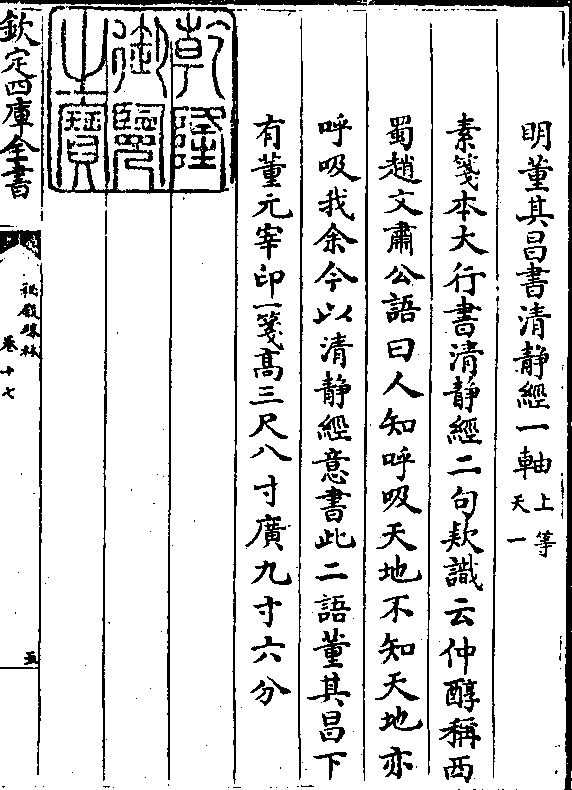 明董其昌書清靜經一軸上等天一
素箋本大行書清靜經二句欵識云仲醇稱西
蜀趙文肅公語曰人知呼吸天地不知天地亦
呼吸我余今以清靜經意書此二語董其昌下
有董元宰印一箋高三尺八寸廣九寸六分
乾隆御覽之寶
欽定四庫全書
祕殿珠林
卷十七
五